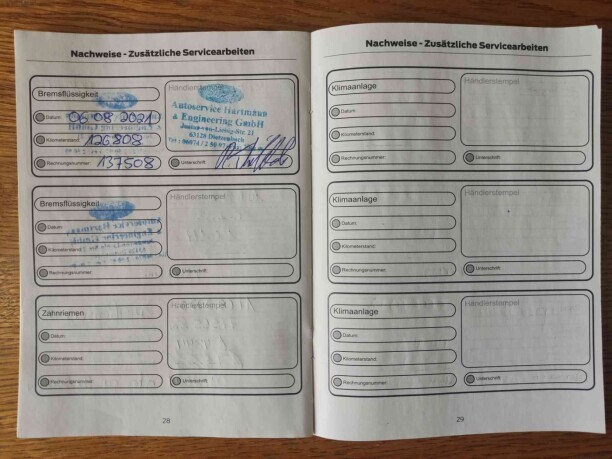 Nachweise - Zusätzliche Servicearbeiten
Bremsflüssigkeit
Händlerstempel
Datum 06 08 2021
Kilometerstand 126808
Rechnungsnummer 137508
Autoservice Hartmann
& Engineering GmbH
63128 Dietzenbach
Unterschrift
Bremsflüssigkeit
Händlerstempel
Datum
Kilometerstand
Rechnungsnummer
Unterschrift
Zahnriemen
Händlerstempel
Datum
Kilometerstand
Rechnungsnummer
Unterschrift
28
Nachweise - Zusätzliche Servicearbeiten
Klimaanlage
Händlerstempel
Datum
Kilometerstand
Rechnungsnummer
Unterschrift
Klimaanlage
Händlerstempel
Datum
Kilometerstand
Rechnungsnummer
Unterschrift
Klimaanlage
Händlerstempel
Datum
Kilometerstand
Rechnungsnummer
Unterschrift
29